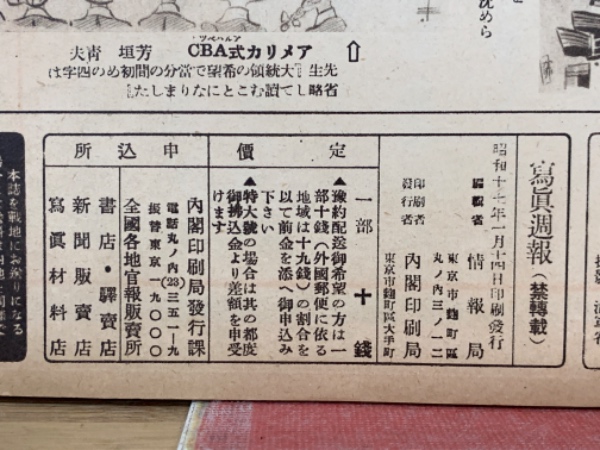 沈めら
アメリカ式ABC 芳垣 靑夫
先生『大統領の希望で當分の間初めの四字は
省略して讀むことになりました』
寫眞週報（禁轉載）
昭和十七年一月十四日印刷發行
編輯者 情報局
東京市麴町區
丸ノ內三ノ一二
印刷者
發行者
內閣印刷局
東京市麴町區大手町
定價
一部 十錢
▲豫約配送御希望の方は一
部十錢（外國郵便に依る
地域は十九錢）の割合を
以て前金を添へ御申込み
下さい
▲特大號の場合は其の都度
御拂込金より差額を申受
けます
申込所
內閣印刷局發行課
電話丸ノ內(23)三五一一九
振替東京一九〇〇〇
全國各地官報販賣所
書店・驛賣店
新聞販賣店
寫眞材料店
本誌を戰地にお送りになる